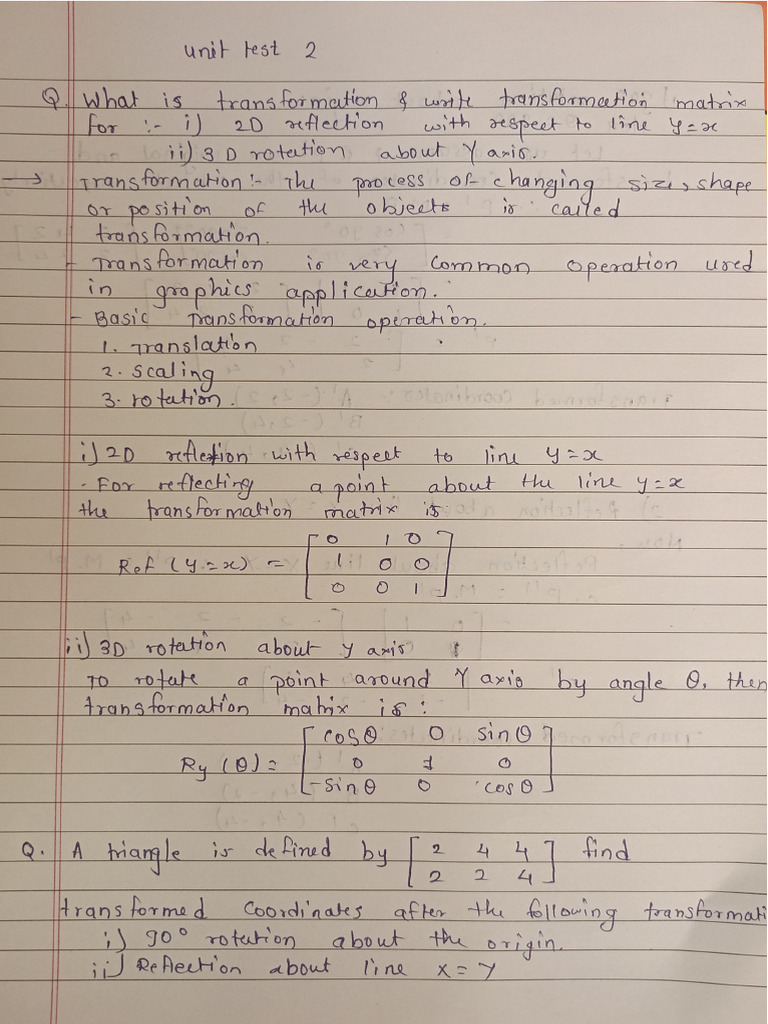 unit test 2
Q. What is transformation & write transformation matrix
for :- i) 2D reflection with respect to line y=x
ii) 3D rotation about Y axis.
→ Transformation:- The process of changing size, shape
or position of the objects is called
transformation.
- Transformation is very common operation used
in graphics application.
- Basic Transformation operation.
1. Translation
2. scaling
3. rotation.
i) 2D reflection with respect to line y=x
- For reflecting a point about the line y=x
the transformation matrix is
Ref (y=x) = [ 0 1 0
1 0 0
0 0 1 ]
ii) 3D rotation about y axis :
To rotate a point around Y axis by angle θ, then
transformation matrix is :
Ry (θ) = [ cosθ 0 sinθ
0 1 0
-sinθ 0 cosθ ]
Q. A triangle is defined by [ 2 4 4 ] find
[ 2 2 4 ]
transformed coordinates after the following transformati
i) 90° rotation about the origin.
ii) Reflection about line x=y